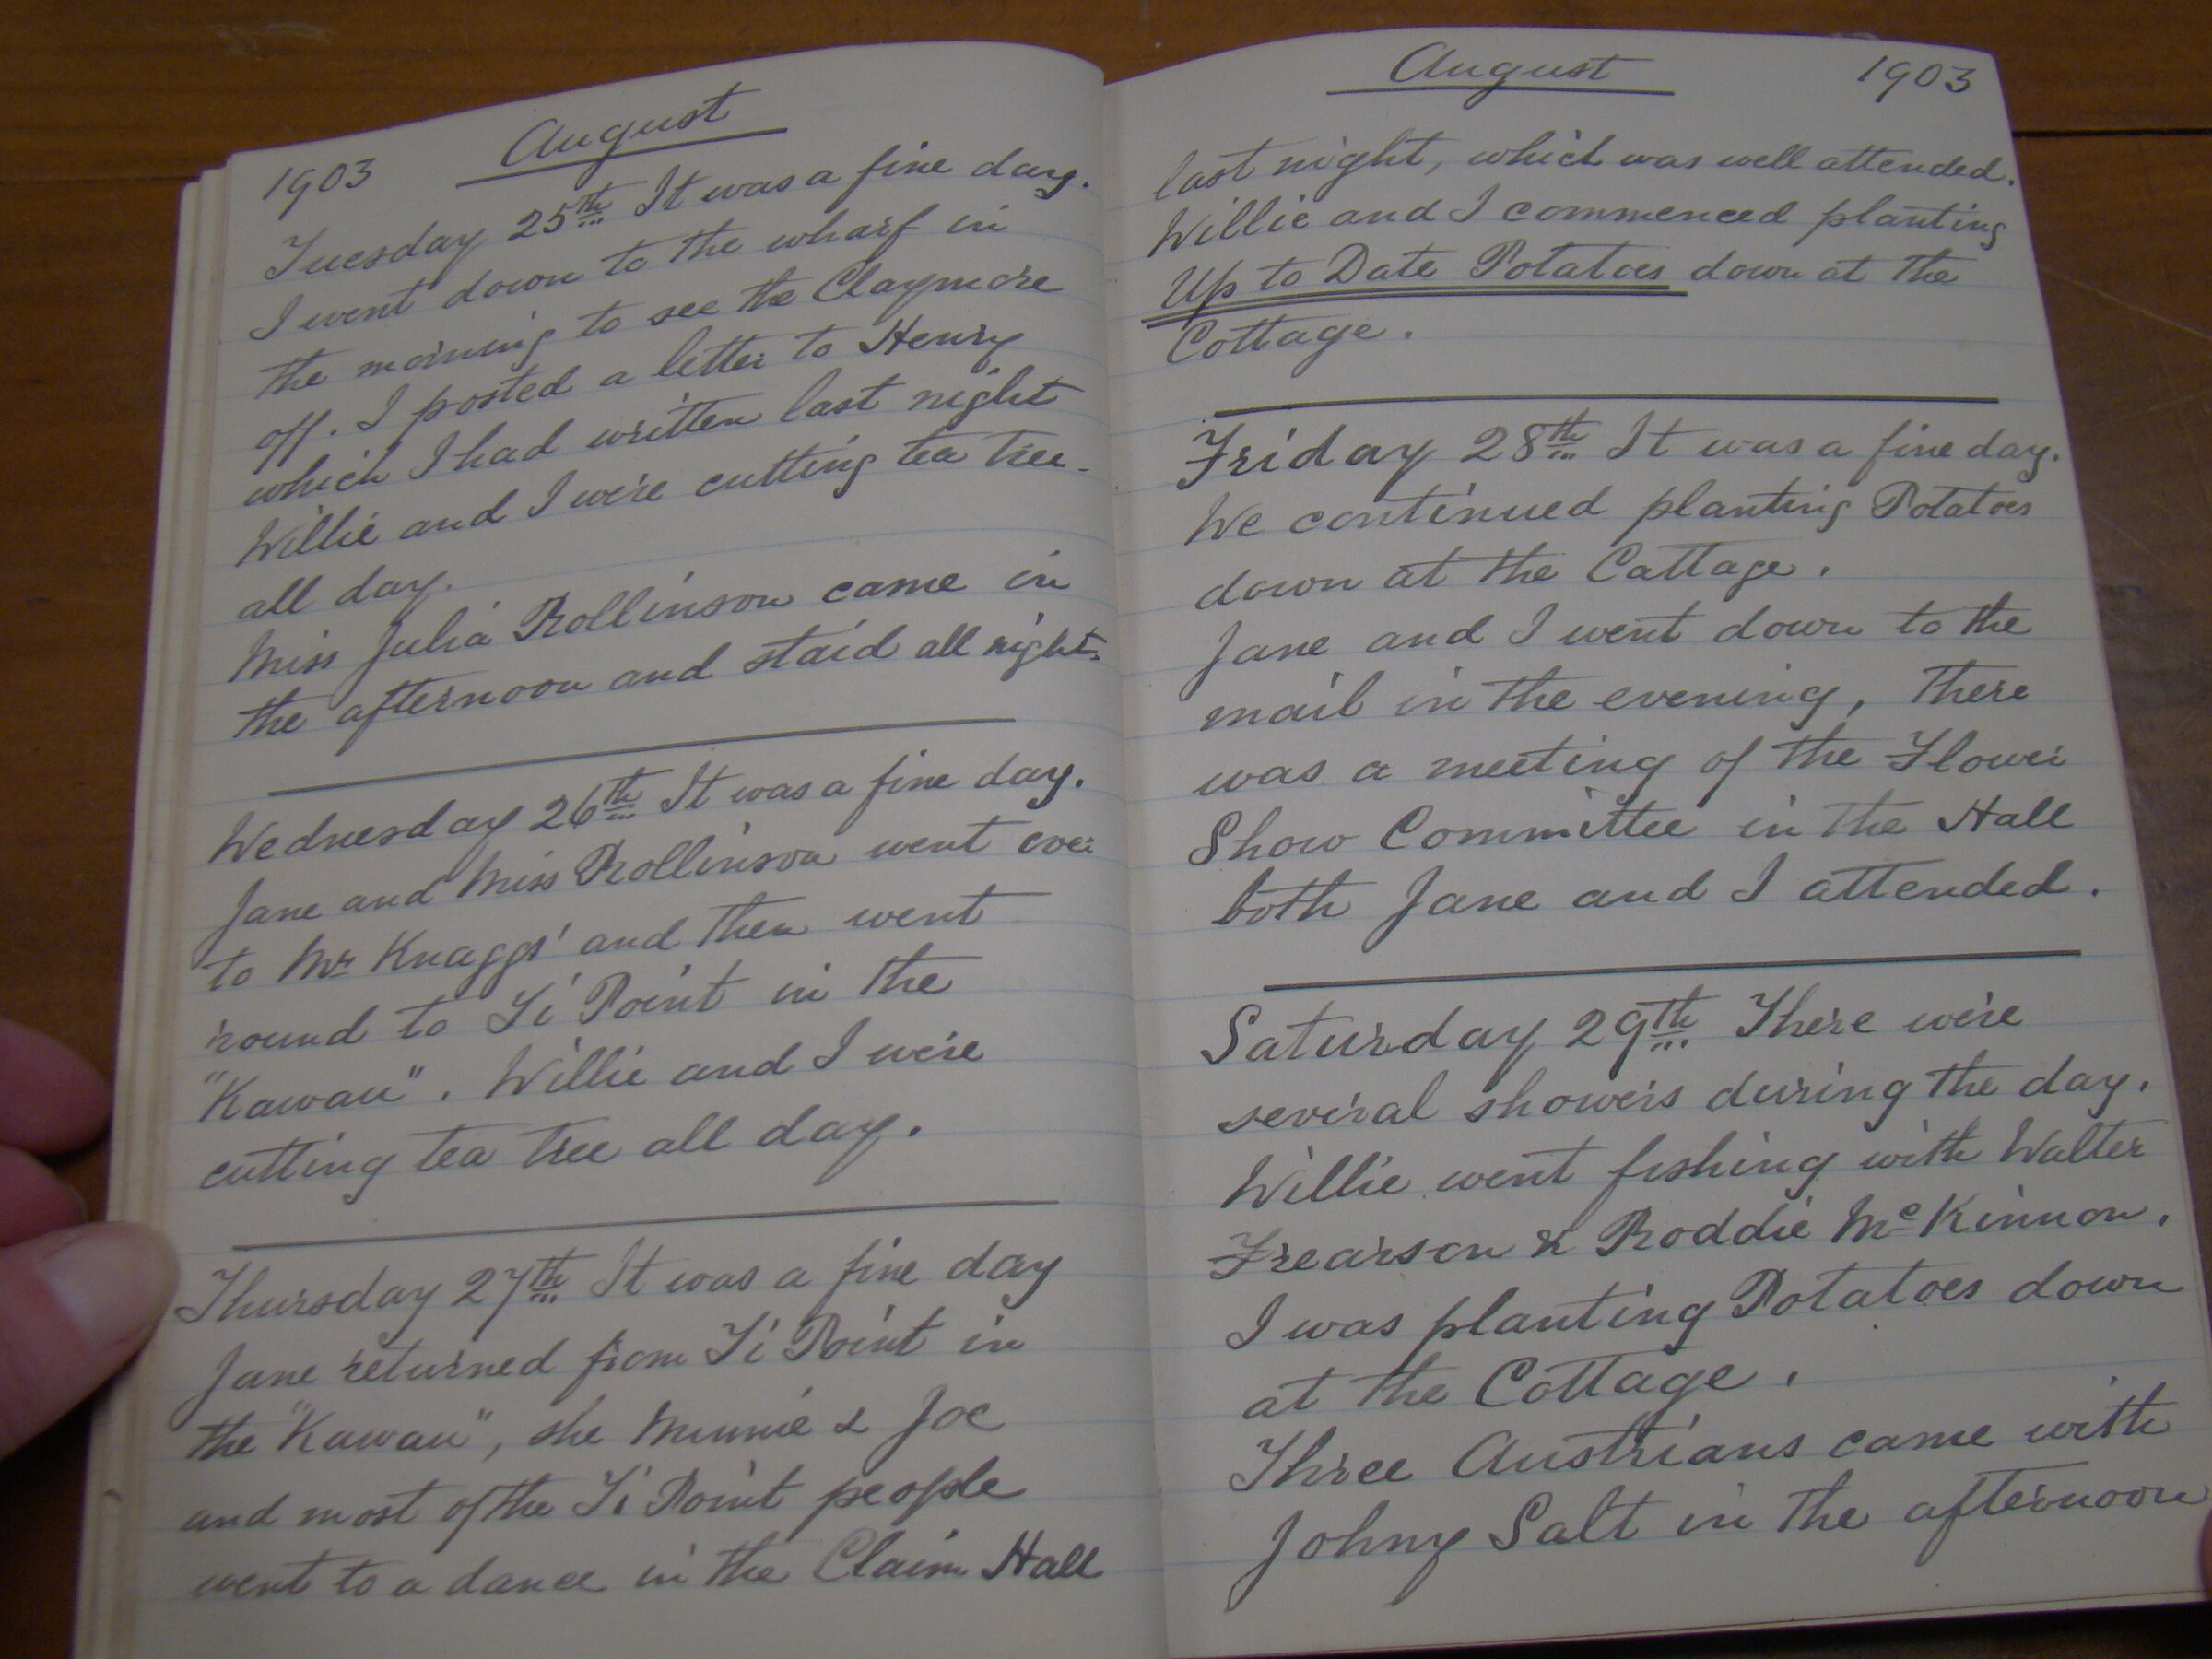 1903 August
Tuesday 25th It was a fine day.
I went down to the wharf in
the morning to see the Claymore
off. I posted a letter to Henry
which I had written last night
Willie and I were cutting tea tree
all day.
Miss Julia Rollinson came in
the afternoon and staid all night.
Wednesday 26th It was a fine day.
Jane and Miss Rollinson went over
to Mr Knaggs' and then went
round to Ti Point in the
"Kawau". Willie and I were
cutting tea tree all day.
Thursday 27th It was a fine day
Jane returned from Ti Point in
the "Kawau", she Minnie & Joe
and most of the Ti Point people
went to a dance in the Claim Hall
August 1903
last night, which was well attended.
Willie and I commenced planting
Up to Date Potatoes down at the
Cottage.
Friday 28th It was a fine day.
We continued planting Potatoes
down at the Cottage.
Jane and I went down to the
mail in the evening, There
was a meeting of the Flower
Show Committee in the Hall
both Jane and I attended.
Saturday 29th There were
several showers during the day.
Willie went fishing with Walter
Frearson & Roddie McKinnon.
I was planting Potatoes down
at the Cottage.
Three Austrians came with
Johny Salt in the afternoon